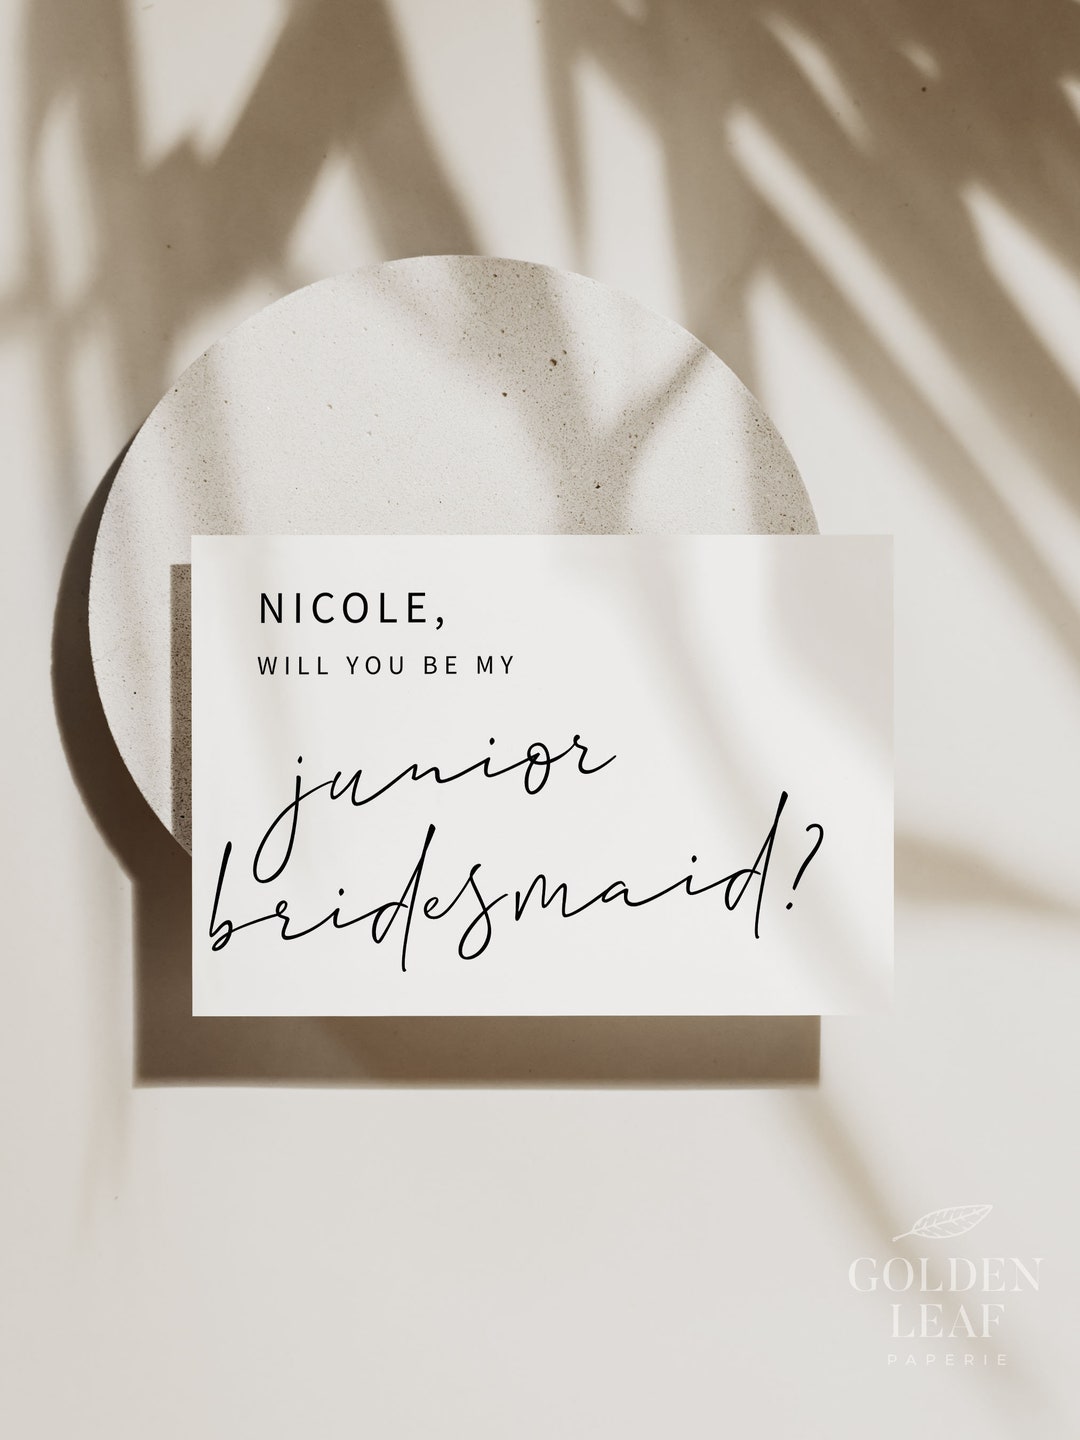 NICOLE,
WILL YOU BE MY
junior
bridesmaid?
GOLDEN
LEAF
PAPERIE